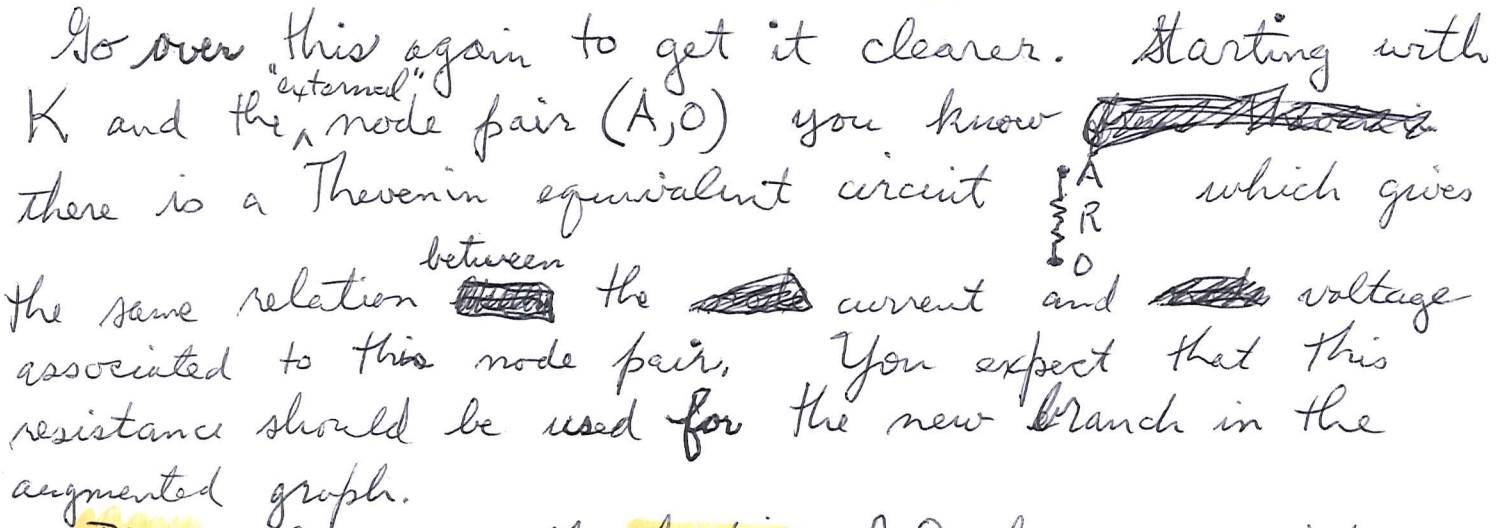 Go over this again to get it clearer. Starting with
K and the "external" node pair (A,O) you know
there is a Thevenin equivalent circuit A R O which gives
the same relation between the current and voltage
associated to this node pair. You expect that this
resistance should be used for the new branch in the
augmented graph.